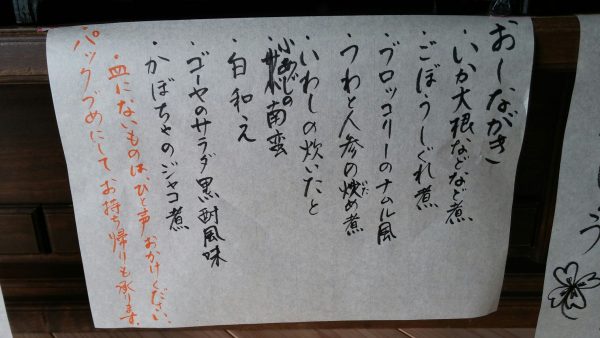 おしながき
・いか大根などなど煮
・ごぼうしぐれ煮
・ブロッコリーのナムル風
・つわと人参の炒め煮
・いわしの炊いたと
小あじの南蛮
・白和え
・ゴーヤのサラダ黒酢風味
・かぼちゃのジャコ煮
・皿にないものは、ひと声おかけください。
パックづめにしてお持ち帰りも承ります。
う